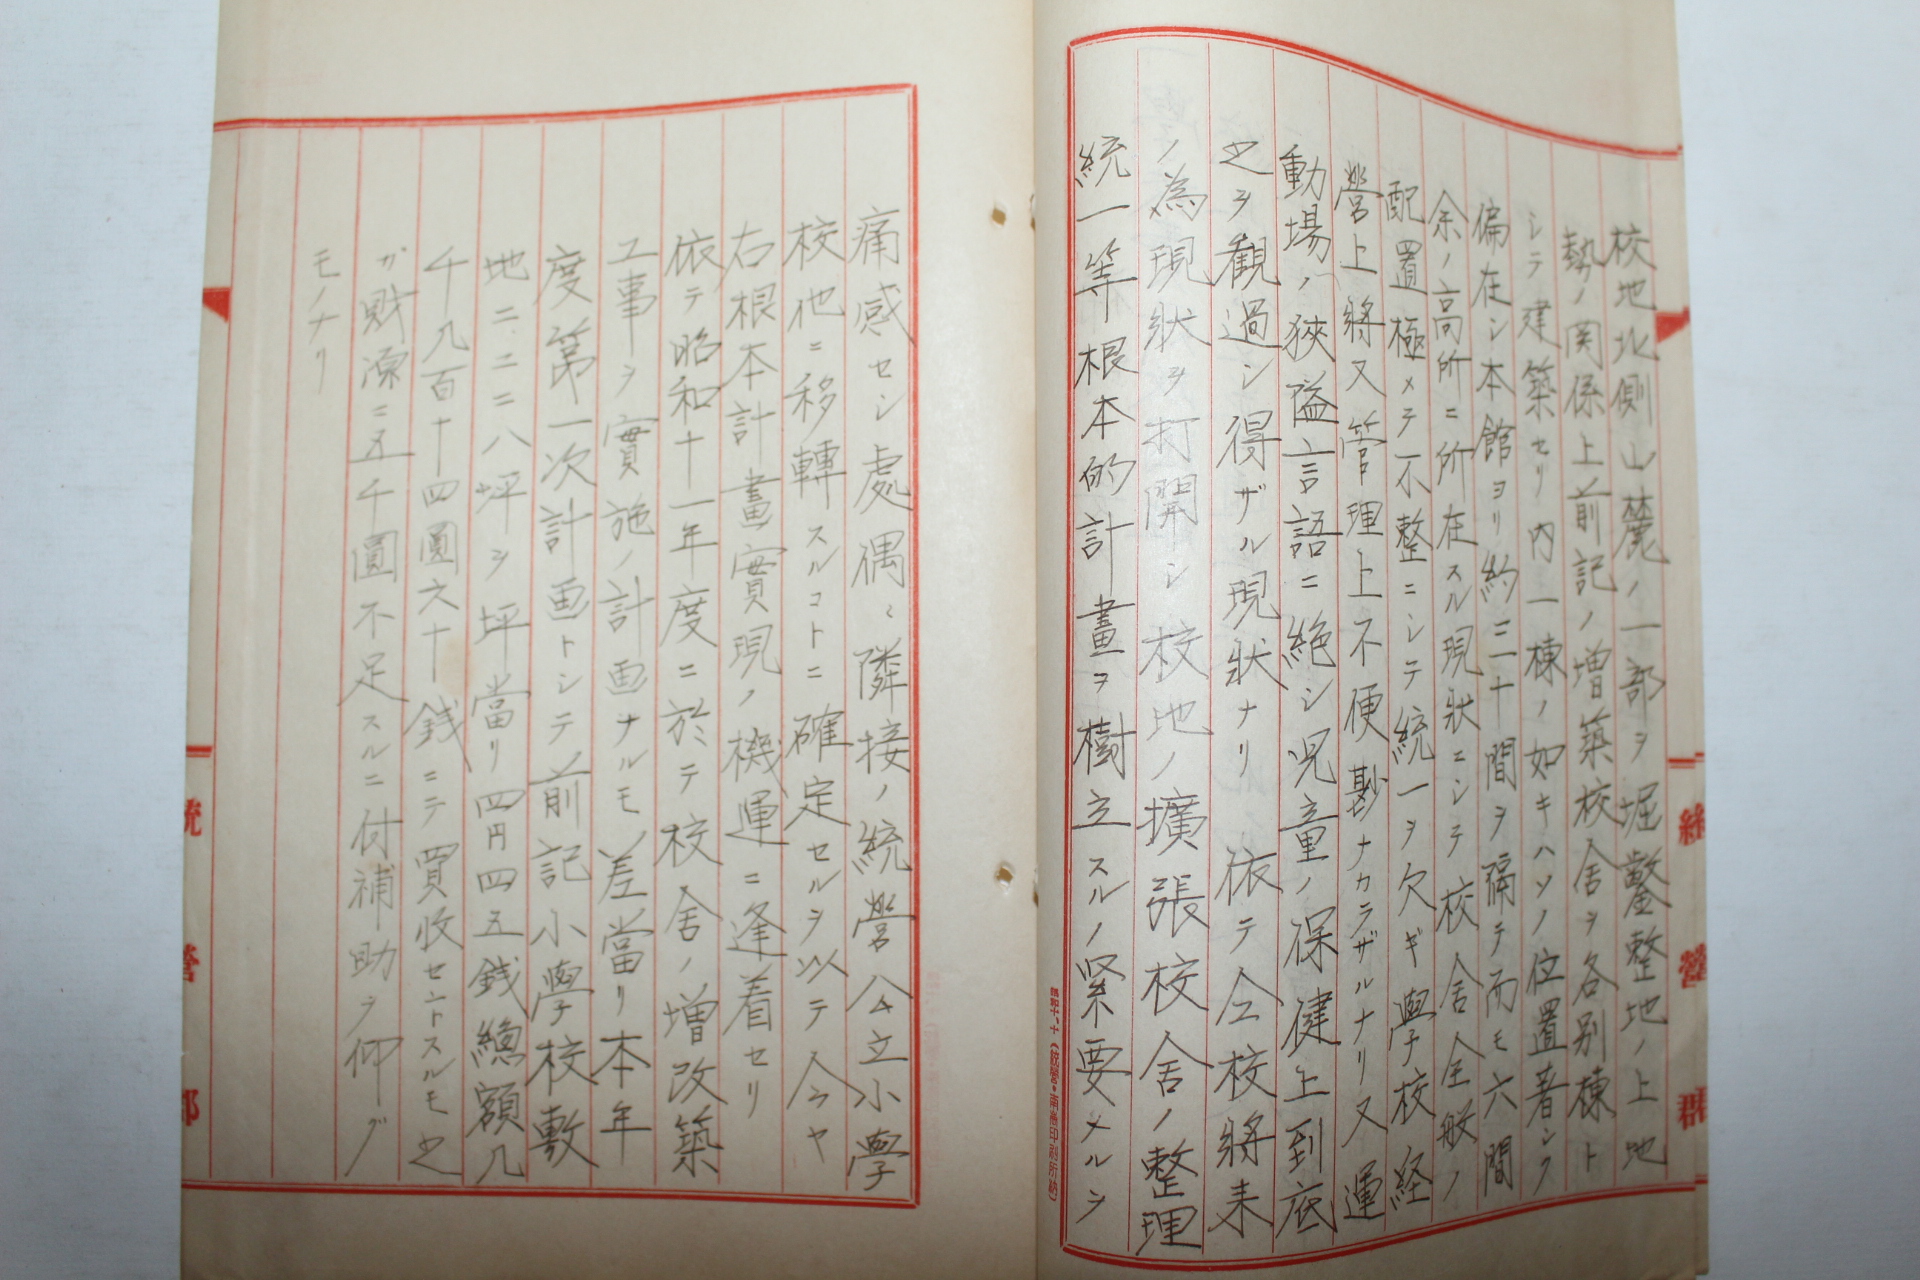 校地北側山麓ノ一部ヲ堀鑿整地ノ上地
勢ノ関係上前記ノ増築校舎ヲ各別棟ト
シテ建築セリ内一棟ノ如キハソノ位置著シク
偏在シ本館ヨリ約三十間ヲ隔テ而モ六間
余ノ高所ニ所在スル現状ニシテ校舎全般ノ
配置極メテ不整ニシテ統一ヲ欠ギ學校経
営上将又管理上不便尠ナカラザルナリ又運
動場ノ狹隘言語ニ絶シ児童ノ保健上到底
之ヲ観過シ得ザル現状ナリ 依テ仝校將来
ノ為現状ヲ打開シ校地ノ擴張校舎ノ整理
統一等根本的計畫ヲ樹立スルノ緊要メルヲ
痛感セシ處偶々隣接ノ統營公立小學
校他ニ移轉スルコトニ確定セルヲ以テ今ヤ
右根本計畫實現ノ機運ニ逢着セリ
依テ昭和十一年度ニ於テ校舎ノ増改築
工事ヲ實施ノ計画ナルモ差當リ本年
度第一次計画トシテ前記小學校敷
地二二二八坪ヲ坪當リ四円四五銭總額九
千九百十四圓六十銭ニテ買收セントスルモ之
ガ財源ニ五千圓不足スルニ付補助ヲ仰グ
モノナリ
統營郡
統營郡